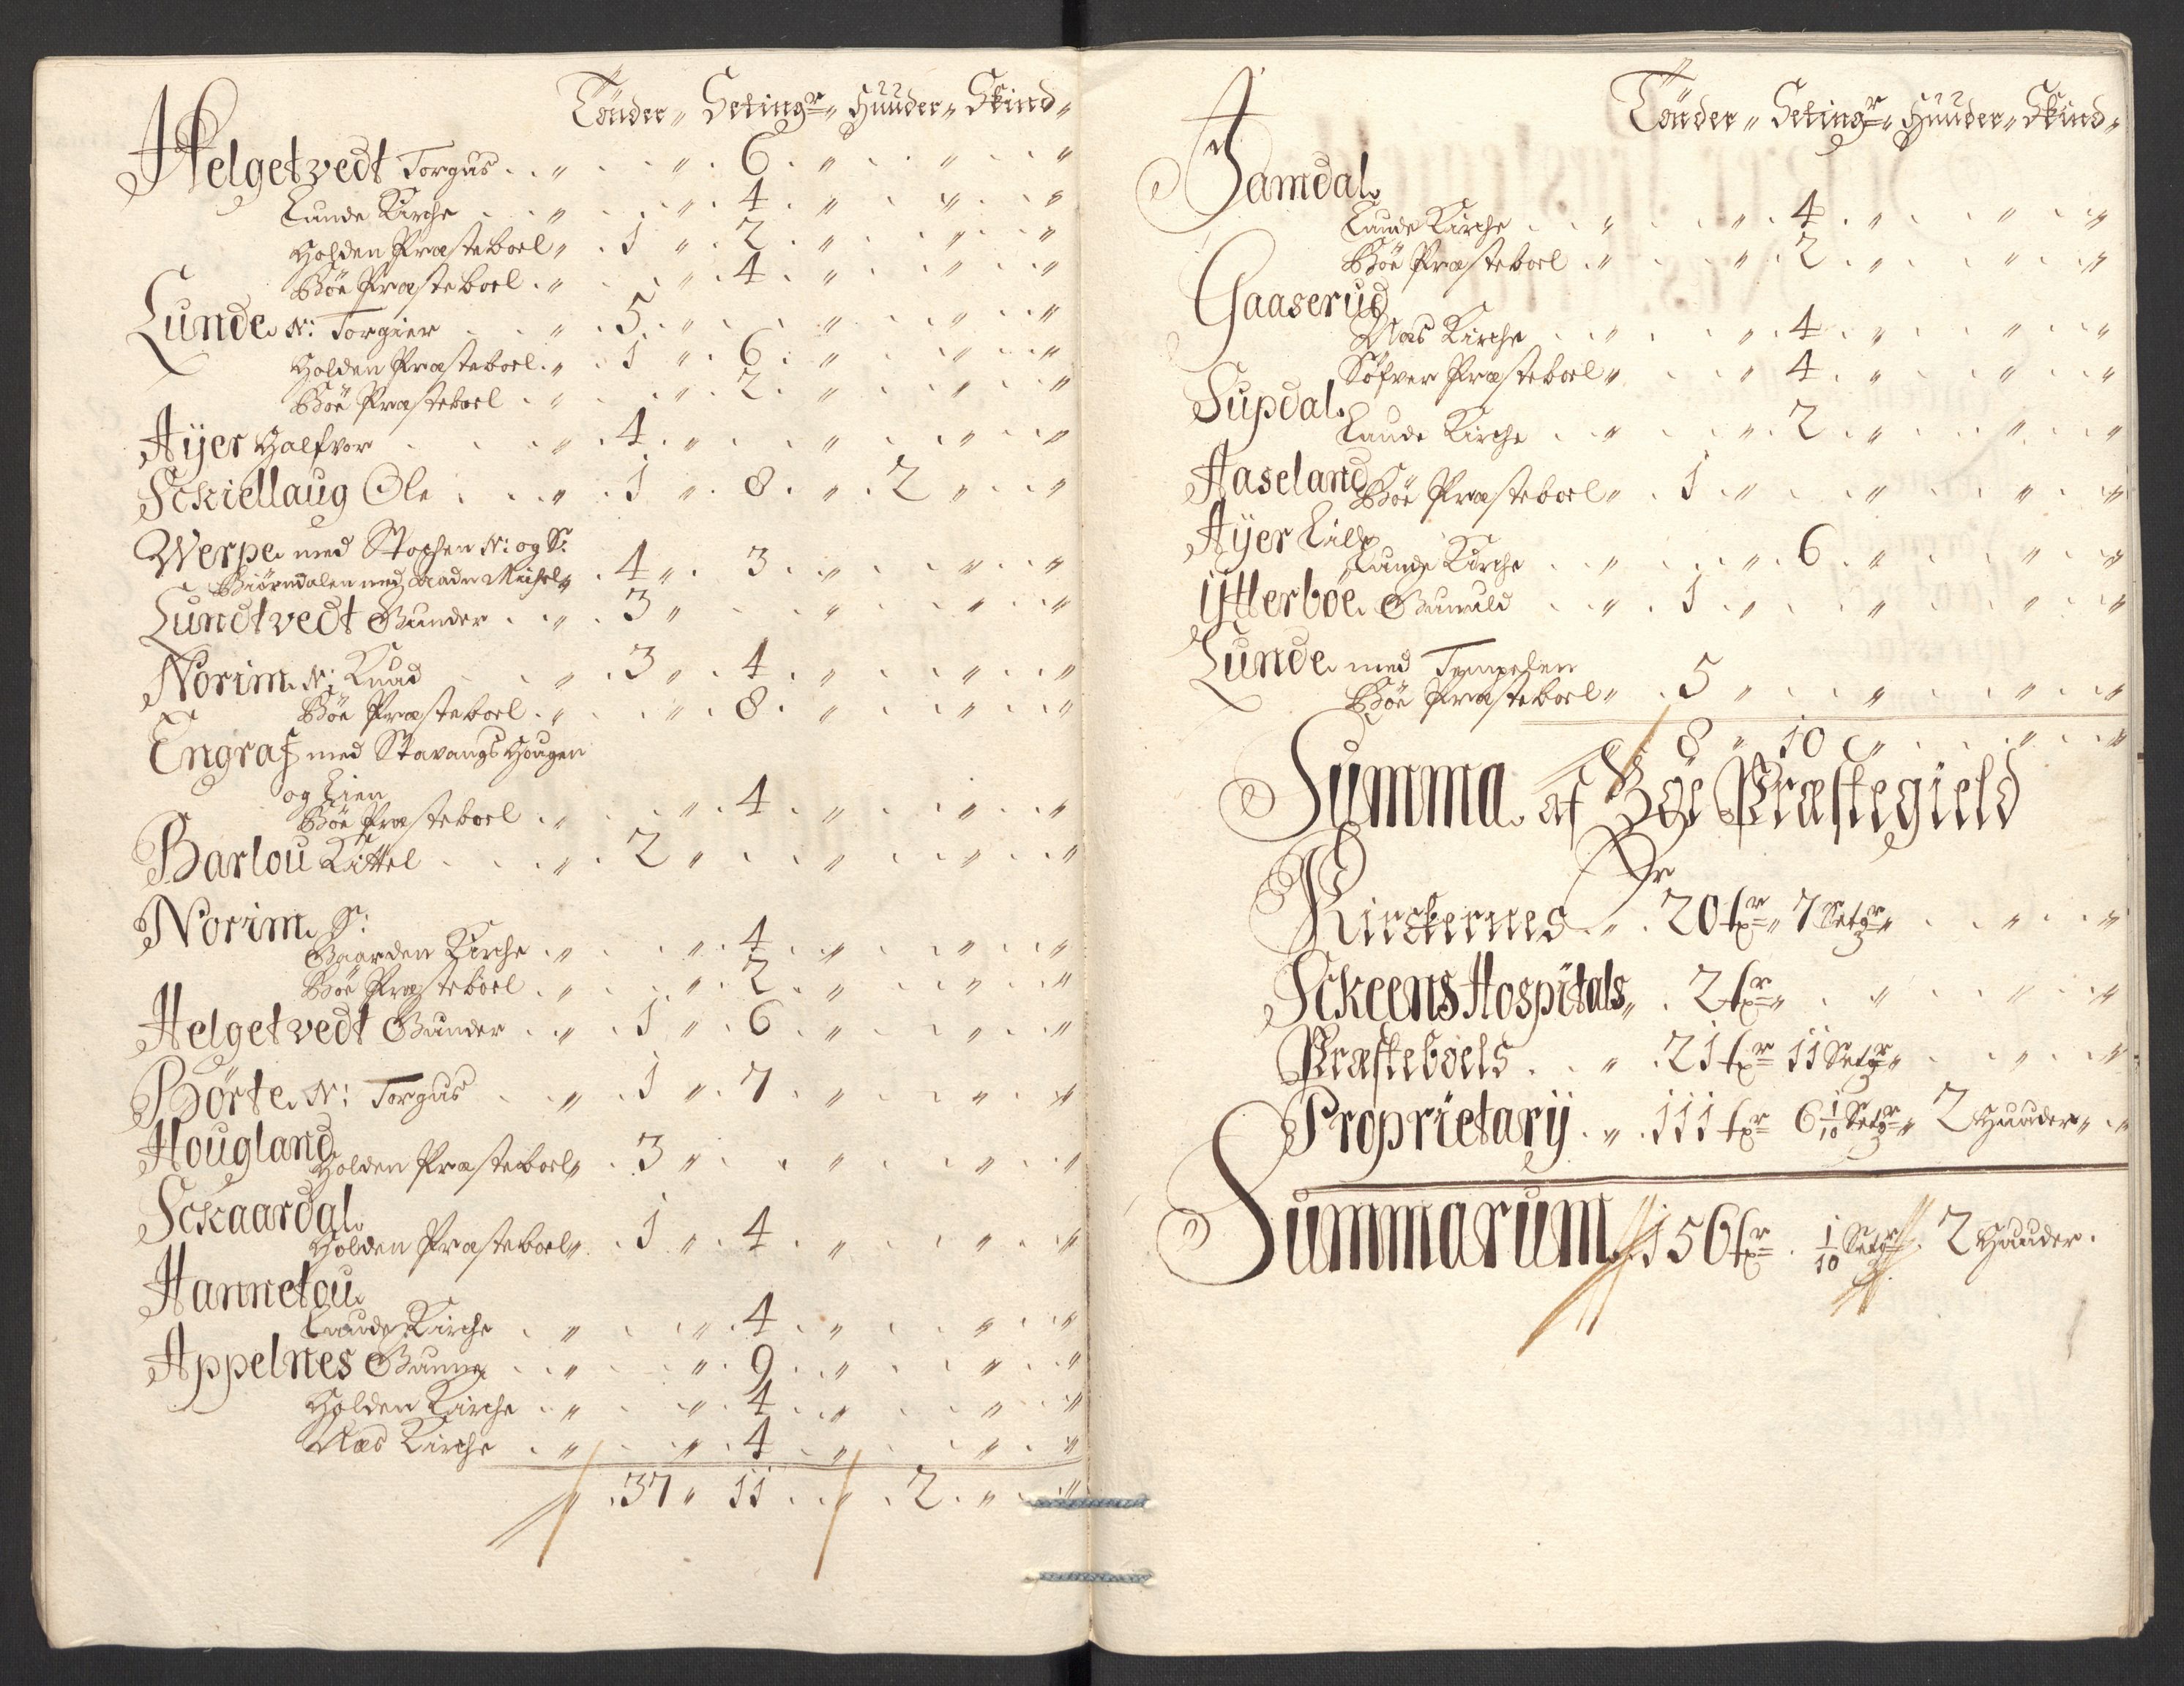 Tönder „ Setingr „ Huuder „ Skind „
Helgetvedt Torgus . . „ . . „ . 6 . „ . . „ . . „
Lunde Kirche . . „ . . „ . 4 . „ . „ . . „
Holden Præsteboel „ . 1 „ . 2 . „ . . „ . . „
Böe Præsteboel . „ . . „ . 4 . „ . . „ . . „
Lunde N: Torgier . . „ . 5 . „ . . „ . . „ . . „
Holden Præsteboel . „ . 1 „ . 6 . „ . . „ . . „
Böe Præsteboel . „ . . „ . 2 . „ . . „ . . „
Aÿer Halfvor . . . „ . 4 . „ . . „ . . „ . . „
Sckiellaug Ole . . . „ . 1 „ . 8 . „ . 2 „ . . „
Werpe med Stochen N: og S:
Biörndalen med Michel „ . 4 „ . 3 . „ . . „ . . „
Lundtvedt Gunder . . „ . 3 „ . . „ . . „ . . „
Norim N: Knud . . „ . 3 „ . 4 . „ . . „ . . „
Böe Præsteboel . „ . . „ . 8 . „ . . „ . . „
Engraf med Stavangs Hougen
og Lien
Böe Præsteboel . „ . . „ . 4 . „ . . „ . . „
Barlou Kittel . . . „ . 2 „ . . „ . . „ . . „
Norim S:
Gaarden Kirche . „ . . „ . 4 . „ . . „ . . „
Böe Præsteboel . „ . . „ . 2 . „ . . „ . . „
Helgetvedt Gunder . . „ . 1 „ . 6 . „ . . „ . . „
Börte N: Torgus . . „ . 1 „ . 7 . „ . . „ . . „
Hougland
Holden Præsteboel „ . 3 „ . . „ . . „ . . „
Sckaardal
Holden Præsteboel „ . 1 „ . 4 . „ . . „ . . „
Hannetou
Lunde Kirche . „ . . „ . 4 . „ . . „ . . „
Appelnes . . „ . . „ . 9 . „ . . „ . . „
Holden Kirche . „ . . „ . 4 . „ . . „ . . „
Næs Kirche . „ . . „ . 4 . „ . . „ . . „
„ . 37 „ 11 . . „ . 2 . „ . . „
Tönder „ Setingr „ Huuder „ Skind „
Jamdal
Lunde Kirche . . „ . . „ . 4 . „ . . „ . . „
Böe Præsteboel . „ . . „ . 2 . „ . . „ . . „
Gaaserud
Næs Kirche . . „ . . „ . 4 . „ . . „ . . „
Söfver Præsteboel „ . . „ . 4 . „ . . „ . . „
Supdal
Lunde Kirche . . „ . . „ . 2 . „ . . „ . . „
Haseland
Böe Præsteboel „ . 1 . „ . . „ . . „ . . „
Aÿer Lille
Lunde Kirche . . „ . . „ . 6 . „ . . „ . . „
Ytterböe Gunuld . . „ . 1 . „ . . „ . . „ . . „
Lunde med Tympelen
Böe Præsteboel „ . 5 „ . . „ . . „ . . „
8 „ 10 „ . . „ . . „
Summa af Böe Præstegield
Kirckernes . „ . 20 txr „ 7 Setgr „ . . „ . . „
Sckeens Hospitals „ . 2 txr „ . . „ . . „ . . „
Præsteboels . . „ . 21 txr 11 Setgr „ . . „ . . „
Proprietarÿ . „ . 111 txr 6 1/10 Setgr „ 2 Huuder „ . „
Summarum „ 156 txr . 1/10 Setgr . 2 Huuder .